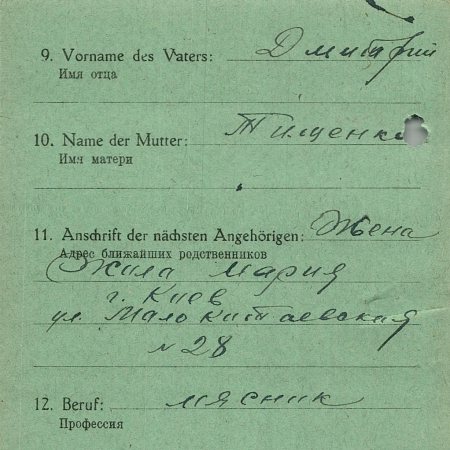 9. Vorname des Vaters: Дмитрий
Имя отца
10. Name der Mutter: Тищенко
Имя матери
11. Anschrift der nächsten Angehörigen: Жена
Адрес ближайших родственников
Жила Мария
г. Киев
ул. Мало Китаевская
№ 28
12. Beruf: мясник
Профессия